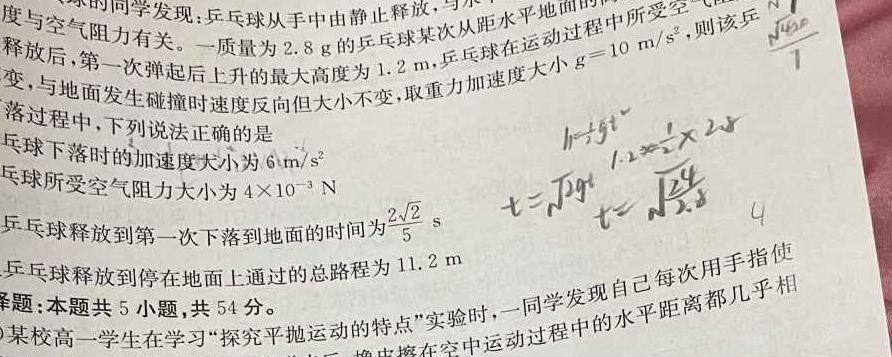 的同学发现:乒乓球从手中由静止释放,与水
度与空气阻力有关。一质量为 2.8 g 的乒乓球某次从距水平地面的
释放后,第一次弹起后上升的最大高度为 1.2 m,乒乓球在运动过程中所受空气
变,与地面发生碰撞时速度反向但大小不变,取重力加速度大小 g=10 m/s²,则该乒
落过程中,下列说法正确的是
乓球下落时的加速度大小为 6 m/s²
乓球所受空气阻力大小为 4×10⁻³ N
乒乓球释放到第一次下落到地面的时间为 2√2/5 s
乒乓球释放到停在地面上通过的总路程为 11.2 m
h=½gt²
t=
t=
4
择题:本题共 5 小题,共 54 分。
)某校高一学生在学习“探究平抛运动的特点”实验时,一同学发现自己每次用手指使
橡皮擦在空中运动过程中的水平距离都几乎相